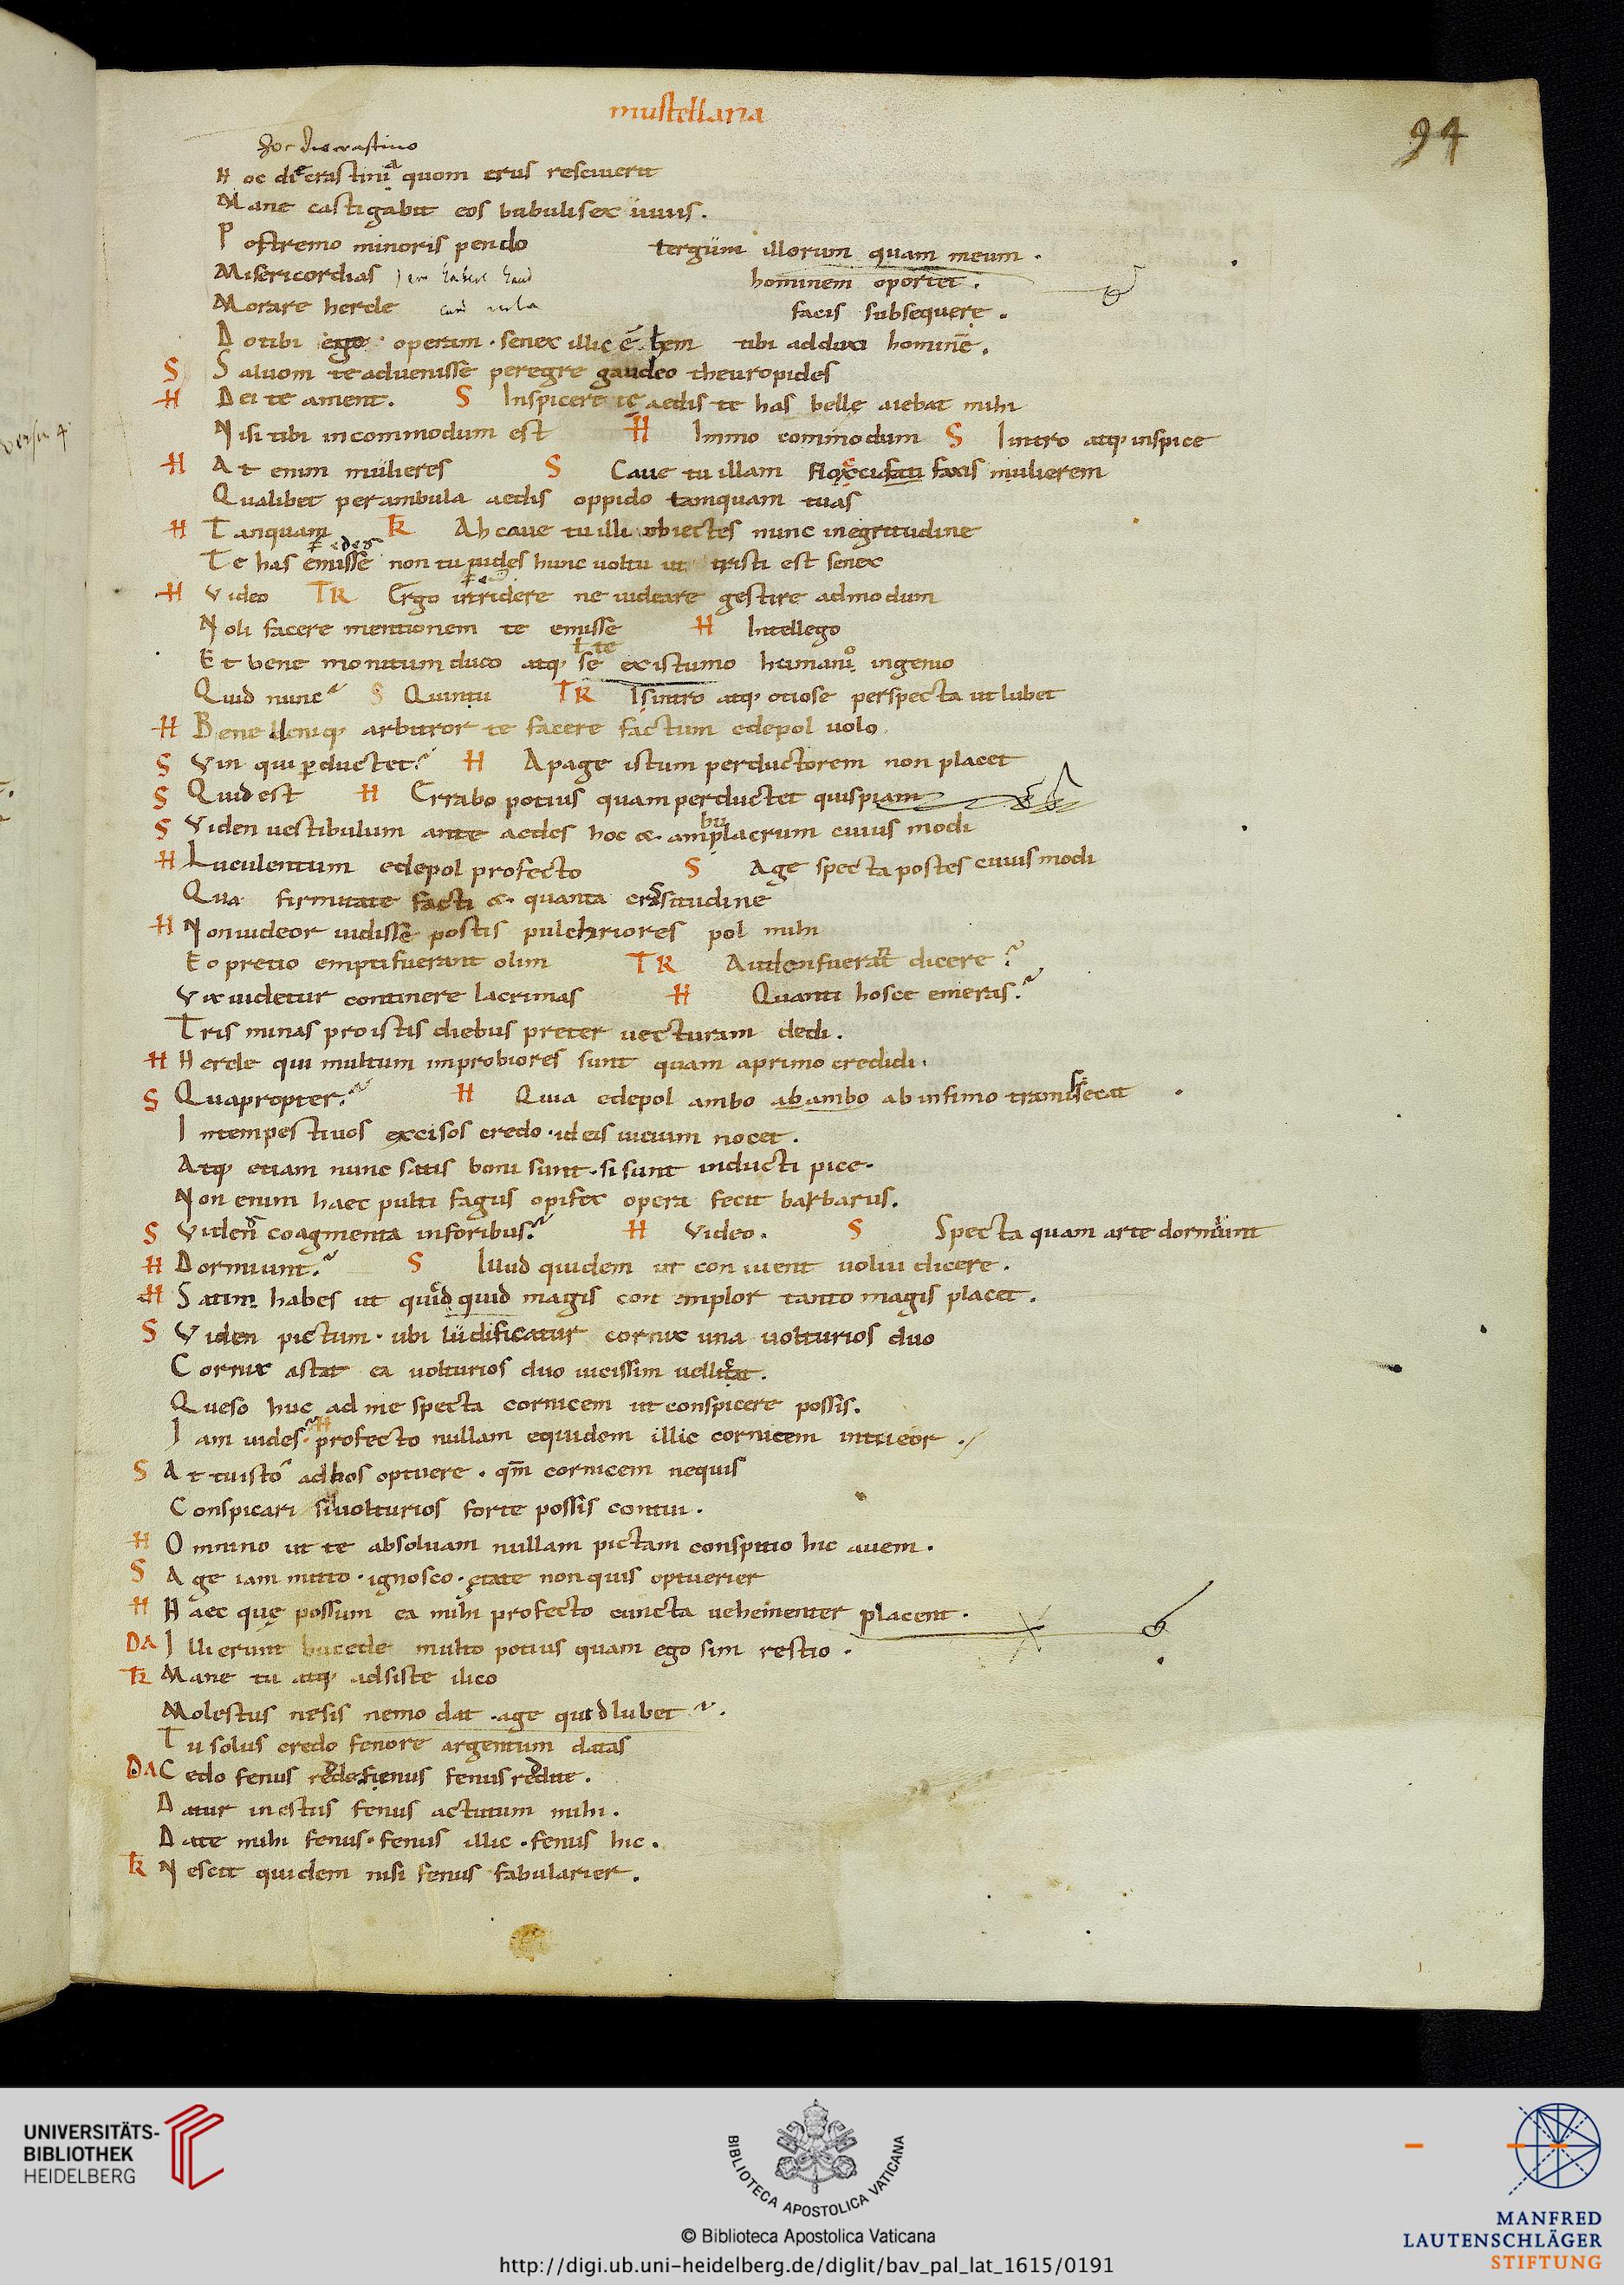 mustellaria
94
hoc die crastino
Hoc die crastini quom erus resciuerit
Mane castigabit eos bubulis exuuiis.
Postremo minoris pendo tergum illorum quam meum.
Misericordias habere haud hominem oportet.
Morare hercle facis subsequere.
Do tibi ego operam. senex illic ē. hem tibi adduxi hominē.
S Saluom te aduenisse peregre gaudeo theuropides
H Dei te ament. S Inspicere te aedis te has belle aiebat mihi
Nisi tibi incommodum est H Immo commodum S I intro atq. inspice
H At enim mulieres S Caue tu illam floxcifatu faxis mulierem
Qualibet perambula aedis oppido tamquam tuas
H Tanquam TR Ah caue tu illi obiectes nunc in egritudine
Te has emisse non tu uides hunc uoltu ut tristi est senex
H Video TR Ergo inridere ne uideare gestire admodum
Noli facere mentionem te emisse H Intellego
Et bene monitum duco atq. se existumo humano ingenio
Quid nunc S Quintu TR Is intro atq. otiose perspecta ut lubet
H Bene benigq. arbitror te facere factum edepol uolo
S Vin qui perductet? H Apage istum perductorem non placet
S Quid est H Errabo potius quam perductet quispiam
S Viden uestibulum ante aedes hoc & amplacrum cuius modi
H Luculentum edepol profecto S Age specta postes cuius modi
Qua firmitate facti & quanta crassitudine
H Non uideor uidisse postis pulchriores pol mihi
Eo pretio empti fuerant olim TR Audin fuerant dicere?
Vix uidetur continere lacrimas H Quanti hosce emeras?
Tris minas pro istis diebus preter uecturam dedi.
H Hercle qui multum improbiores sunt quam a primo credidi.
S Quapropter? H Quia edepol ambo ab ambo ab infimo tramisecat
Intempestiuos excisos credo. id eis uitium nocet.
Atq. etiam nunc satis boni sunt. si sunt inducti pice.
Non enim haec pulti fagus opifex opera fecit barbarus.
S Viden coagmenta in foribus? H Video. S Specta quam arte dormiunt
H Dormiunt? S Illud quidem ut coniuent uolui dicere.
H Satim habes ut quidquid magis contemplor tanto magis placet.
S Viden pictum. ubi ludificatur cornix una uolturios duo
Cornix astat ea uolturios duo uicissim uellicat.
Queso huc ad me specta cornicem ut conspicere possis.
Iam uides? H profecto nullam equidem illic cornicem intueor.
S At tu isto ad hos optuere. qm̄ cornicem nequis
Conspicari si uolturios forte possis contui.
H Omnino ut te absoluam nullam pictam conspitio hic auem.
S Age iam mitto. ignosco. ętate non quis optuerier
H Haec quę possum ea mihi profecto cuncta uehementer placent.
DA Illi erunt bucede multo potius quam ego sim restio.
TR Mane tu atq. adsiste ilico
Molestus ne sis nemo dat. age quid lubet.
Tu solus credo fenore argentum datas
DA Cedo fenus redde fenus fenus reddite.
Datur inestus fenus actutum mihi.
Date mihi fenus. fenus illic. fenus hic.
TR Nescit quidem nisi fenus fabularier.
UNIVERSITÄTS-
BIBLIOTHEK
HEIDELBERG
BIBLIOTECA APOSTOLICA VATICANA
© Biblioteca Apostolica Vaticana
http://digi.ub.uni-heidelberg.de/diglit/bav_pal_lat_1615/0191
MANFRED
LAUTENSCHLÄGER
STIFTUNG